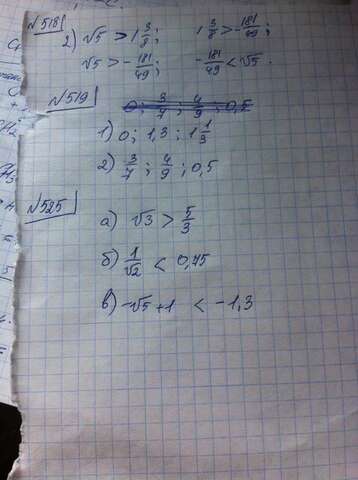 N518
2) √5 > 1 3/8; 1 3/8 > -181/49;
√5 > -181/49; -181/49 < √5.
N519
0; 3/7; 4/9; 0,5
1) 0; 1,3; 1 1/3
2) 3/7; 4/9; 0,5
N525
а) √3 > 5/3
б) 1/√2 < 0,75
в) -√5+1 < -1,3